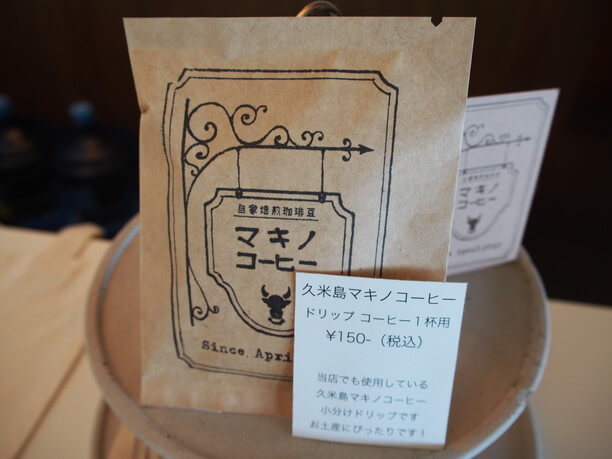 自家焙煎珈琲豆
マキノ
コーヒー
Since. Apri
久米島マキノコーヒー
ドリップ コーヒー１杯用
¥150-（税込）
当店でも使用している
久米島マキノコーヒー
小分けドリップです
お土産にぴったりです！
マキノ
コーヒー